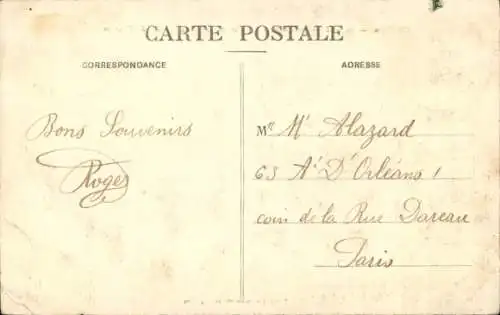 CARTE POSTALE
CORRESPONDANCE
ADRESSE
Bons Souvenirs
Roger
M Mr Alazard
63 Ar D'Orléans
coin de la Rue Dareau
Paris